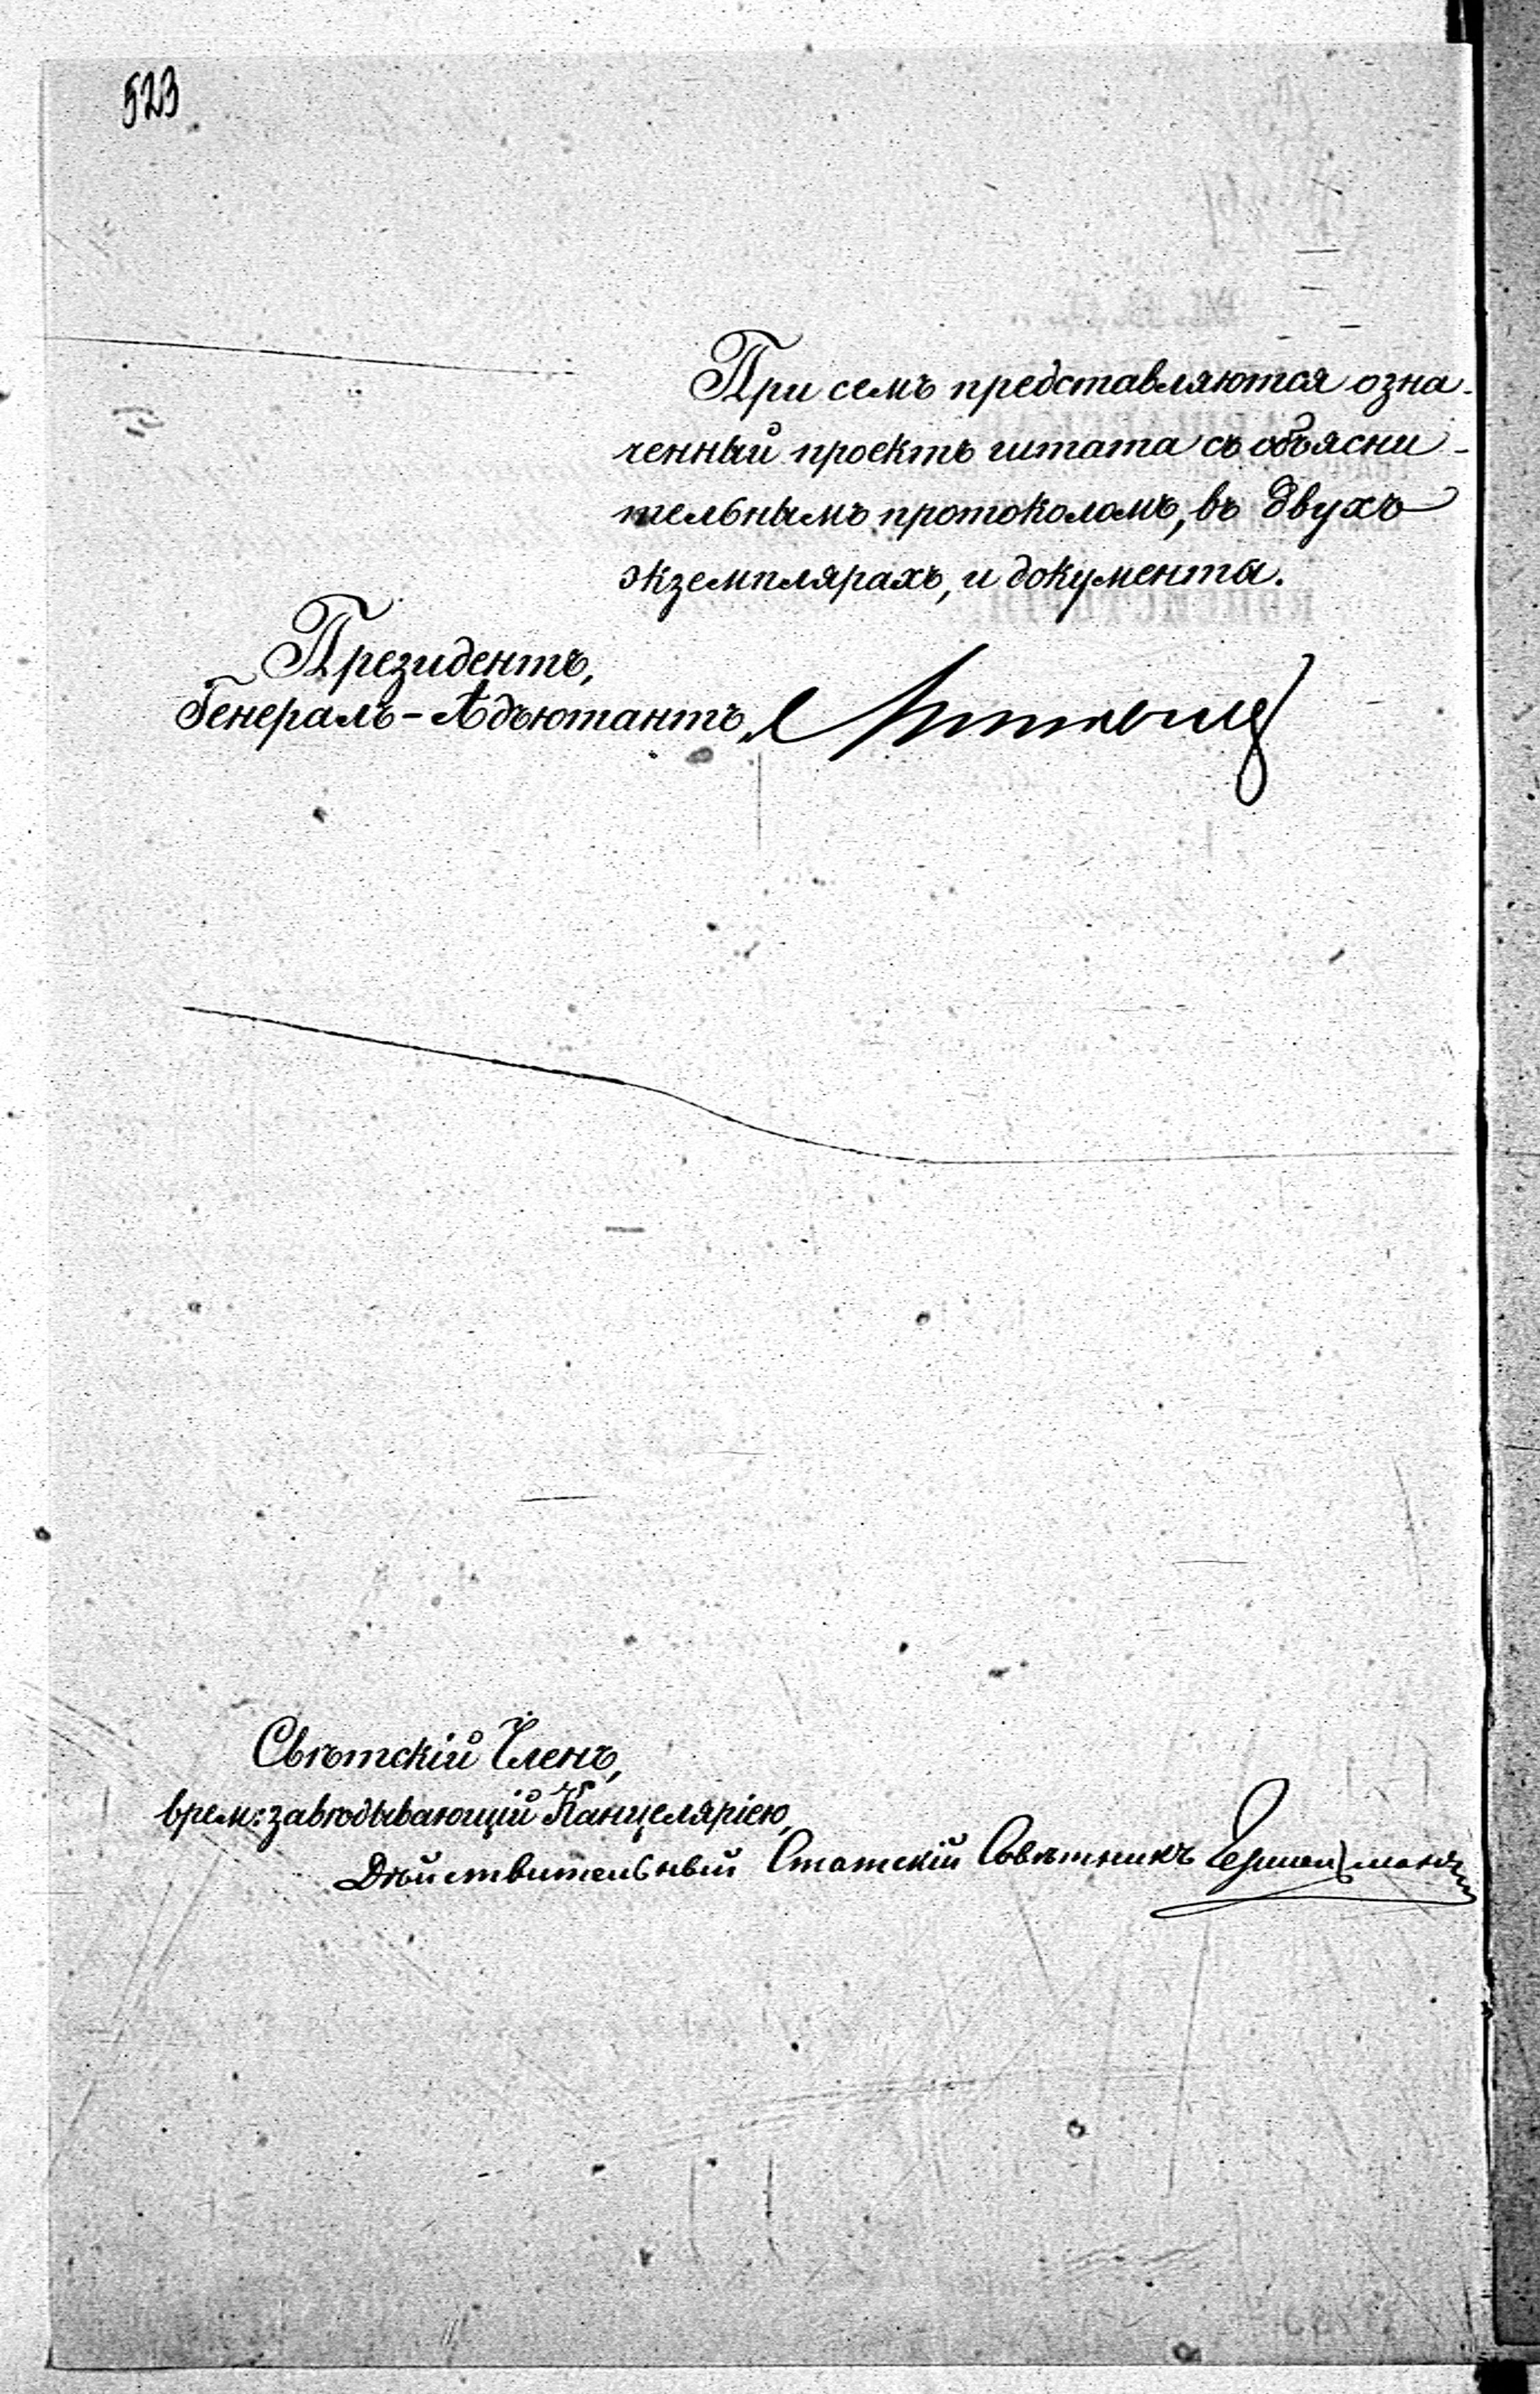 523
При семъ представляются озна-
ченный проектъ штата съ объясни-
тельнымъ протоколомъ, въ двухъ
экземплярахъ, и документы.
Президентъ,
Генералъ-Адъютантъ,
Свѣтскій Членъ,
врем: завѣдывающій Канцеляріею,
Дѣйствительный Статскій Совѣтникъ